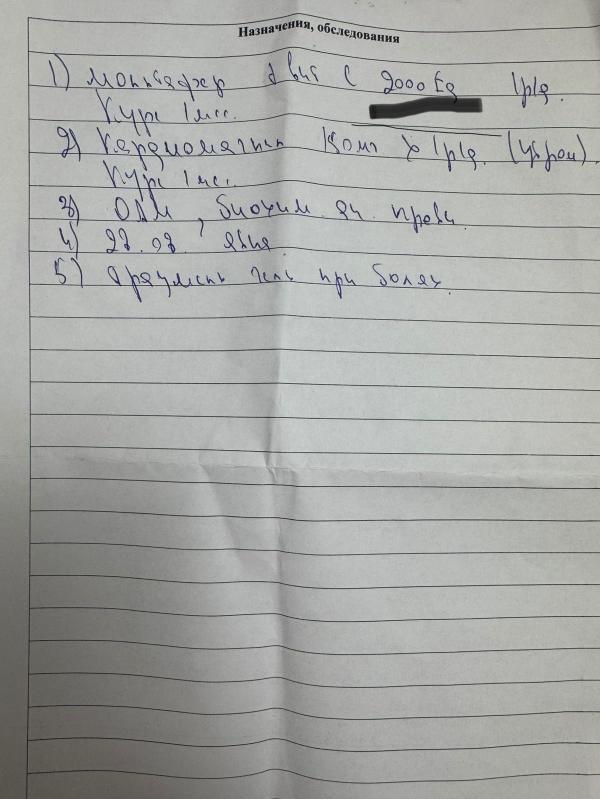 Назначения, обследования
1) 2000 Ед 1р/д.
Курс 1 мес.
2) Кардиомагнил 1р/д. (утром).
Курс 1 мес.
3) ОАМ, биохим. ан. крови.
4) явка
5) гель при болях.